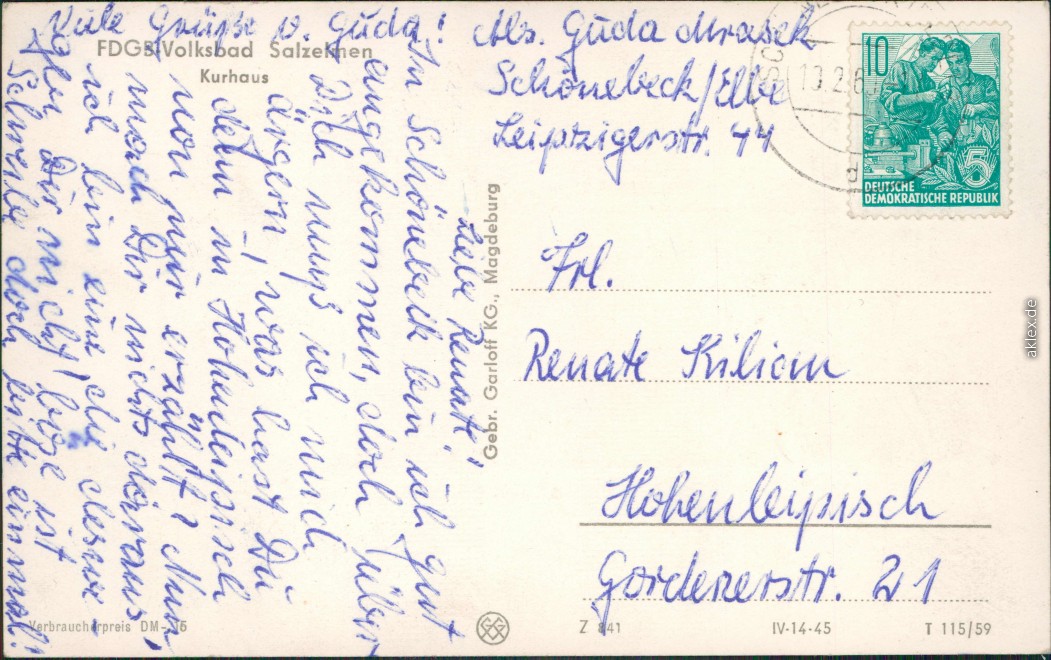 Viele Grüße v. Guda!
FDGB-Volksbad Salzelmen
Kurhaus
Liebe Renate!
In Schönebeck bin ich gut
angekommen, doch über
Dich muß ich mich
ärgern, was hast Du
denn in Hohenleipisch
von mir erzählt? Nun
mach Dir nichts daraus,
ich bin eine, die deswe-
gen Dir nicht böse ist
Schreibe doch bitte einmal!
Verbraucherpreis DM -,15
Gebr. Garloff KG., Magdeburg
Abs. Guda Mrasek
Schönebeck/Elbe
Leipzigerstr. 44
10
5
DEUTSCHE
DEMOKRATISCHE REPUBLIK
Frl.
Renate Kilian
Hohenleipisch
Gordenerstr. 21
Z 841
IV-14-45
T 115/59
aklex.de